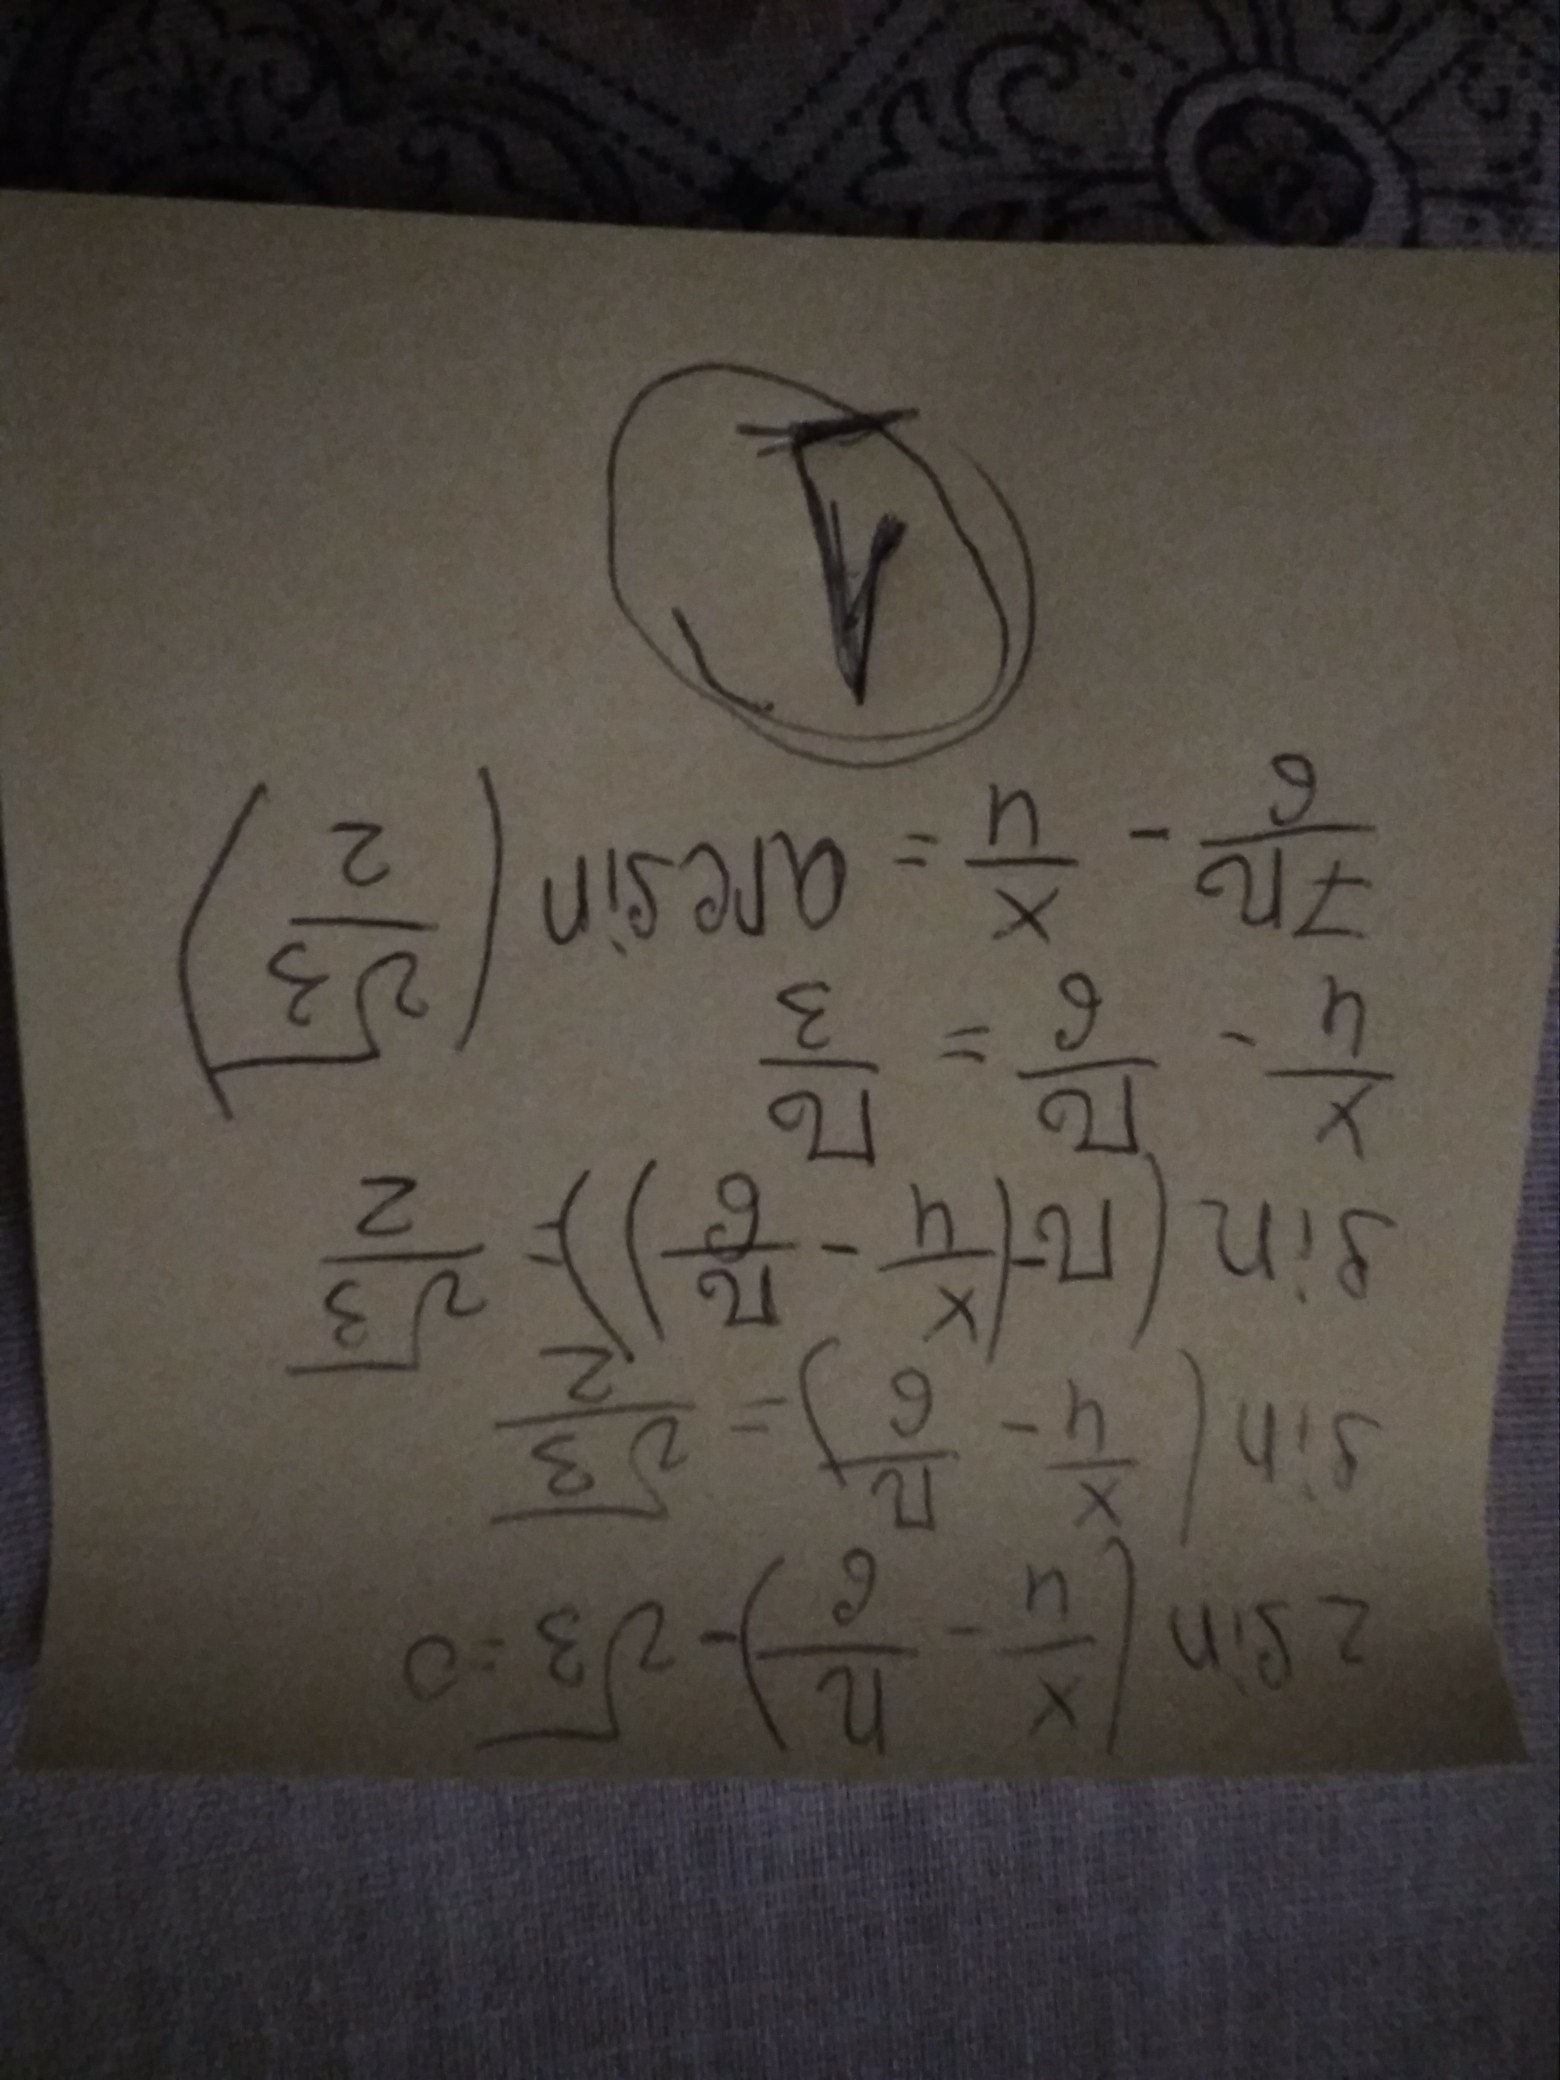 2 sin (x/4 - π/6) - √3 = 0
sin (x/4 - π/6) = √3/2
sin (π - (x/4 - π/6)) = √3/2
x/4 - π/6 = π/3
7π/6 - x/4 = arcsin (√3/2)
1